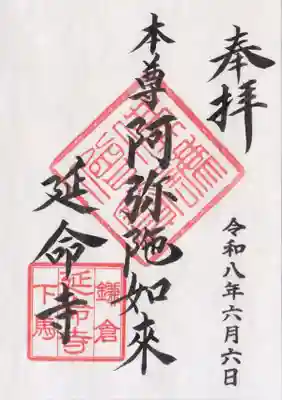 奉拝
令和八年六月六日
本尊 阿弥陀如來
延命寺
鎌倉
延命寺
下馬